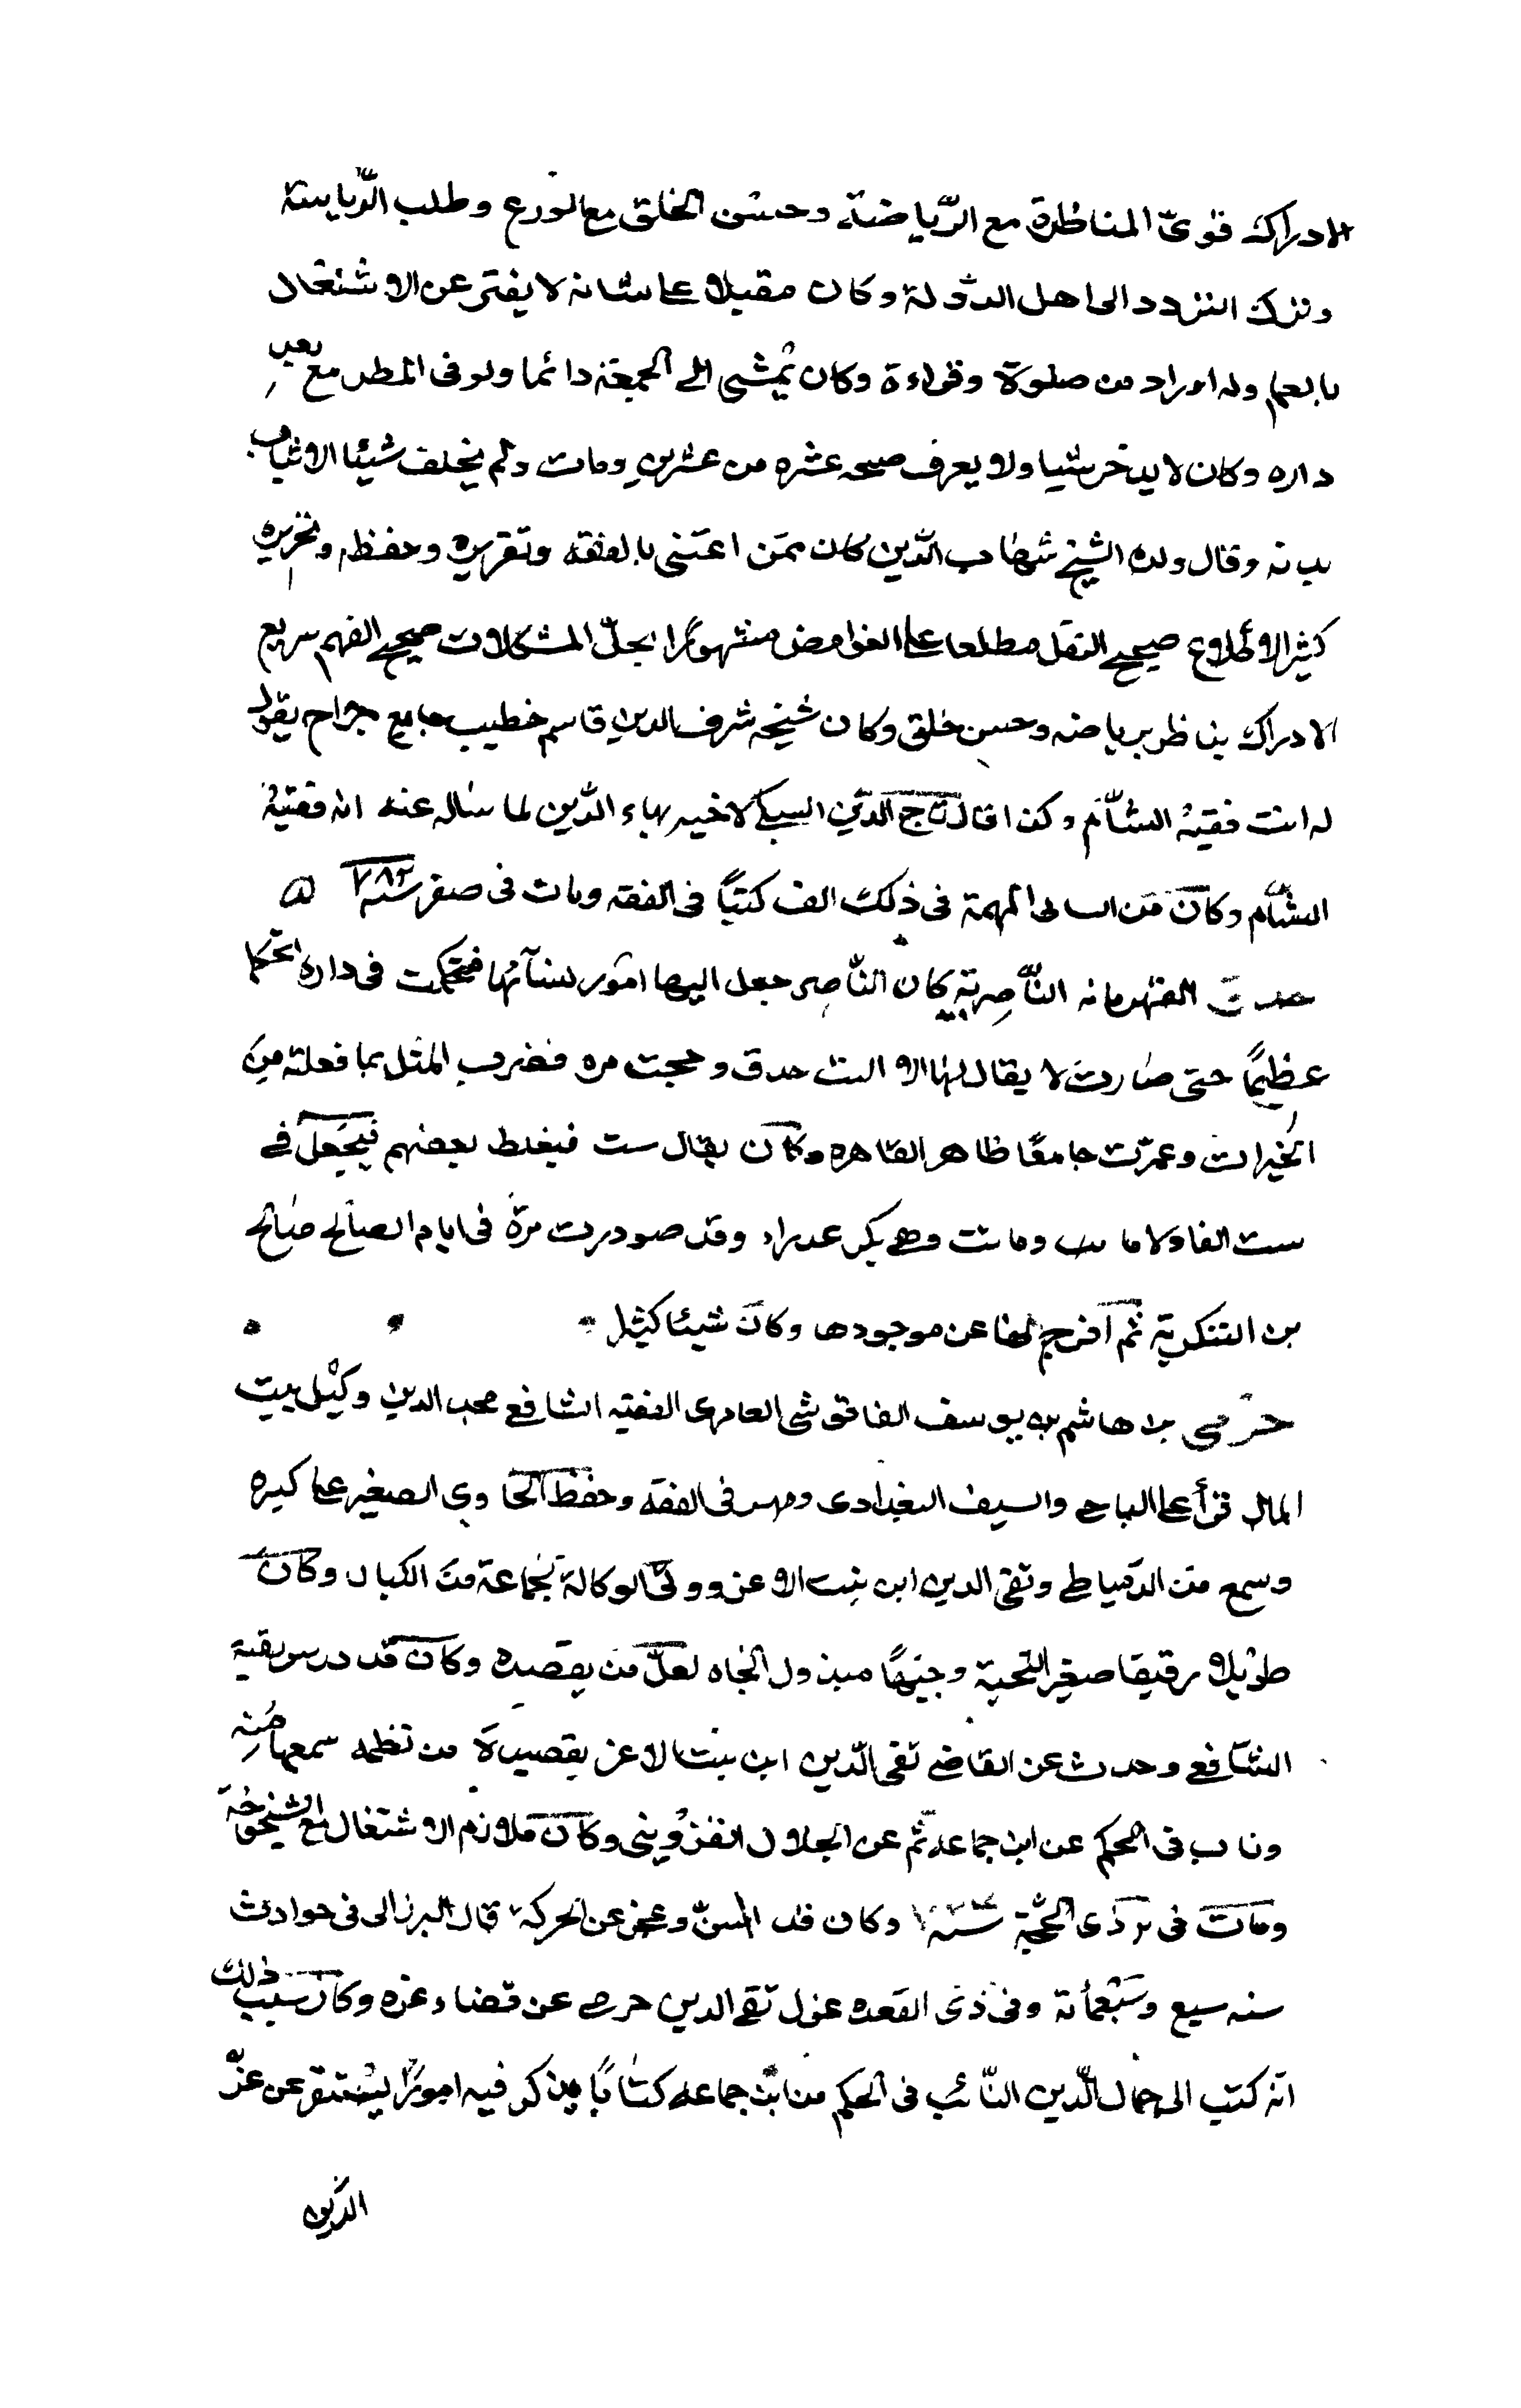 الادراك قوىّ المناظرة مع الرّياضة وحسن الخلق مع الورع وطلب الرّياسة
وترك التردد الى اهل الدّولة وكان مقبلا على شانه لا يفتر عن الاشتغال
بالعلم وله اوراد من صلوة وقراءة وكان يمشى الى الجمعة دائما ولو فى المطر مع بعد
داره وكان لا يدخر شيا ولا يعرف صحه عشره من عشرين ومات ولم يخلف شيئا الا ثياب
بدنه وقال ولده الشيخ شهاب الدّين كان ممن اعتنى بالفقه وتقريره وحفظه وتحريره
كثير الاطلاع صحيح النقل مطلعا على الغوامض مشهورا بحلّ المشكلات صحيح الفهم سريع
الادراك يناظر برياضه وحسن خلق وكان شيخه شرف الدين قاسم خطيب جامع جراح يقول
له انت فقيه الشّام وكذا قال تاج الدّين السبكى لاخيه بهاء الدّين لما ساله عنه انه فقيه
الشّام وكان من المهمة فى ذلك الف كتبًا فى الفقه ومات فى صفر سنه ٧٨٢
حدق القهرمانه النّاصرية كان النّاصر جعل اليها امور نسآئها فتحكمت فى داره تحكما
عظيمًا حتى صارت لا يقال لها الا الست حدق وحجت مره فضرب المثل بما فعلته من
الخيرات وعمّرت جامعًا ظاهر القاهره وكان يقال ست فيغلط بعضهم فيجعل فى
ست الفا ولاما ومات وهى بكر عذراء وقد صودرت مرة فى ايام الصالح صالح
بن التنكرية ثم افرج لها عن موجودها وكان شيئا كثيرا
حرمى بن هاشم بن يوسف الفاقوشى العامرى الفقيه الشافعى مجد الدين وكيل بيت
المال قرأ على الباجى والسيف البغدادى ومهر فى الفقه وحفظ الحاوى الصغير على كبره
وسمع من الدّمياطى وتقى الدين ابن بنت الاعز وولىّ الوكالة لجماعة من الكبار وكان
طويلا رقيقا صغير اللّحية وجيهًا مبذول الجاه لكلّ من يقصده وكان قد درس بقبة
الشّافعى وحدث عن القاضى تقى الدّين ابن بنت الاعز بقصيدة من نظمه سمعها منه
وناب فى الحكم عن ابن جماعه ثم عن الجلال القزوينى وكان ملازم الاشتغال مع الشيخوخة
ومات فى ذى الحجّة وكان قد اسنّ وعجز عن الحركة قال البرزالى فى حوادث
سنه سبع وسبعمائة وفى ذى القعده عزل تقى الدين حرمى عن قضاء غزه وكان سبب ذلك
انه كتب الى جمال الدّين النّائب فى الحكم من ابن جماعه كتابًا يذكر فيه امورًا ليستقر عن عزّ
الدّين